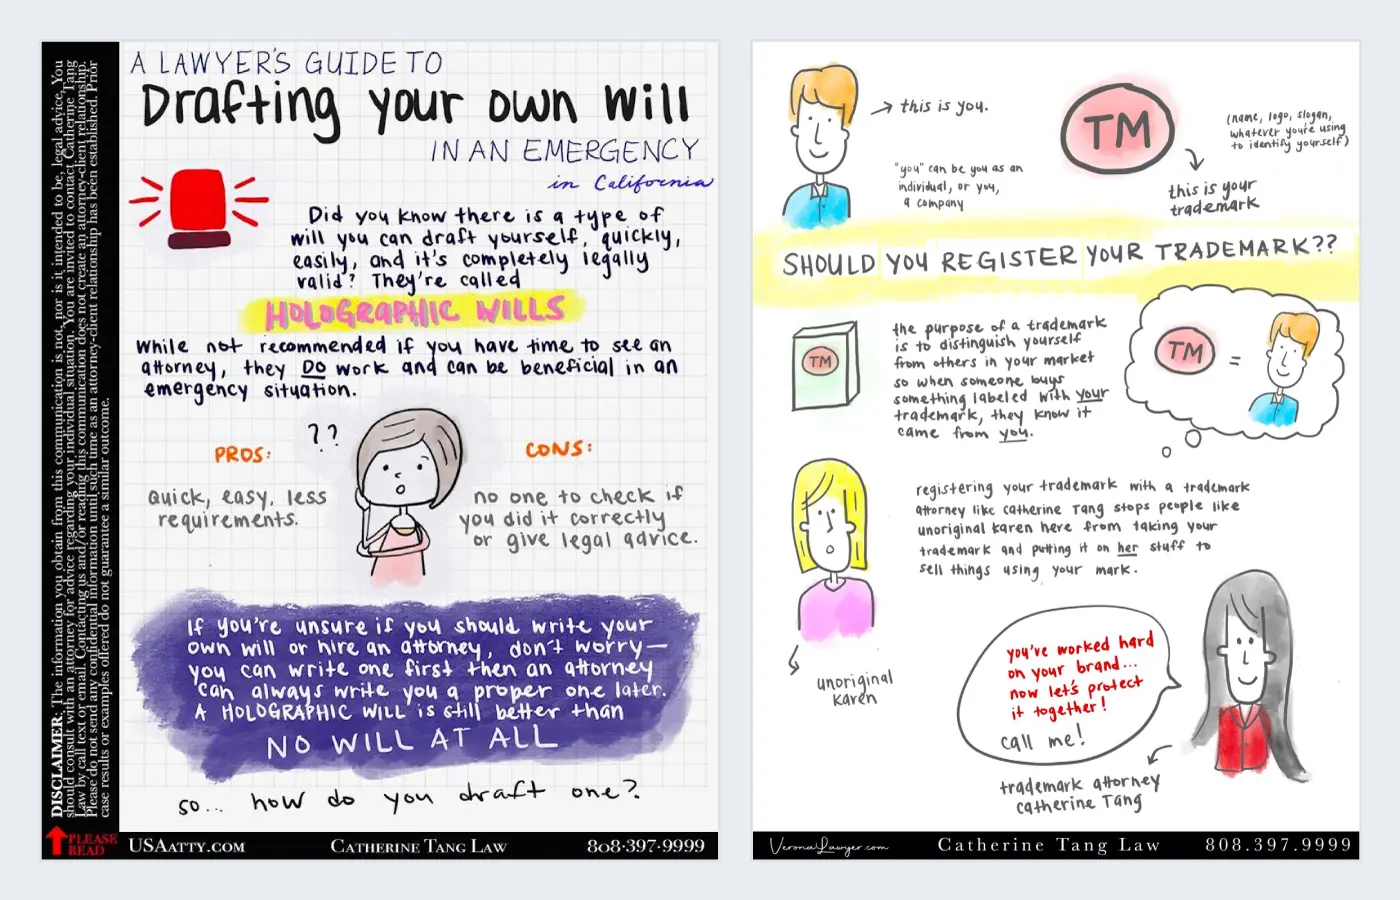 DISCLAIMER: The information you obtain from this communication is not, nor is it intended to be, legal advice. You
should consult with an attorney for advice regarding your individual situation. You are invited to contact Catherine Tang
Law by call text or email. Contacting us and/or reading this communication does not create an attorney-client relationship.
Please do not send any confidential information until such time as an attorney-client relationship has been established. Prior
case results or examples offered do not guarantee a similar outcome.
PLEASE
READ
A LAWYER'S GUIDE TO
Drafting your own will
IN AN EMERGENCY
in California
Did you know there is a type of
will you can draft yourself, quickly,
easily, and it's completely legally
valid? They're called
HOLOGRAPHIC WILLS
While not recommended if you have time to see an
attorney, they DO work and can be beneficial in an
emergency situation.
??
PROS:
quick, easy, less
requirements.
CONS:
no one to check if
you did it correctly
or give legal advice.
If you're unsure if you should write your
own will or hire an attorney, don't worry—
you can write one first then an attorney
can always write you a proper one later.
A HOLOGRAPHIC WILL is still better than
NO WILL AT ALL
so... how do you draft one?
USAATTY.COM
CATHERINE TANG LAW
808-397-9999
this is you.
"you" can be you as an
individual, or you,
a company
TM
(name, logo, slogan,
whatever you're using
to identify yourself)
this is your
trademark
SHOULD YOU REGISTER YOUR TRADEMARK??
TM
the purpose of a trademark
is to distinguish yourself
from others in your market
so when someone buys
something labeled with your
trademark, they know it
came from you.
TM =
registering your trademark with a trademark
attorney like Catherine Tang stops people like
unoriginal Karen here from taking your
trademark and putting it on her stuff to
sell things using your mark.
unoriginal
Karen
you've worked hard
on your brand...
now let's protect
it together!
call me!
trademark attorney
Catherine Tang
VeronaLawyer.com
Catherine Tang Law
808.397.9999